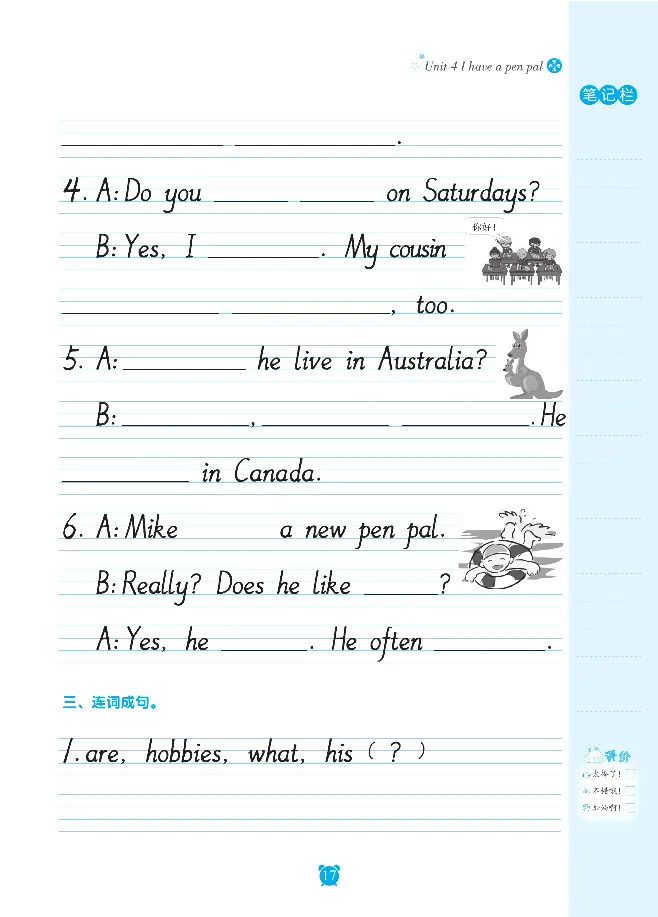 Unit 4 I have a pen pal
笔记栏
________ ________.
4. A: Do you ________ ________ on Saturdays?
你好!
B: Yes, I ________. My cousin
________ ________, too.
5. A: ________ he live in Australia?
B: ________, ________ ________. He
________ in Canada.
6. A: Mike a new pen pal.
B: Really? Does he like ________?
A: Yes, he ________. He often ________.
三、连词成句。
1. are, hobbies, what, his ( ? )
评价
太棒了!
不错哦!
加油啊!
17